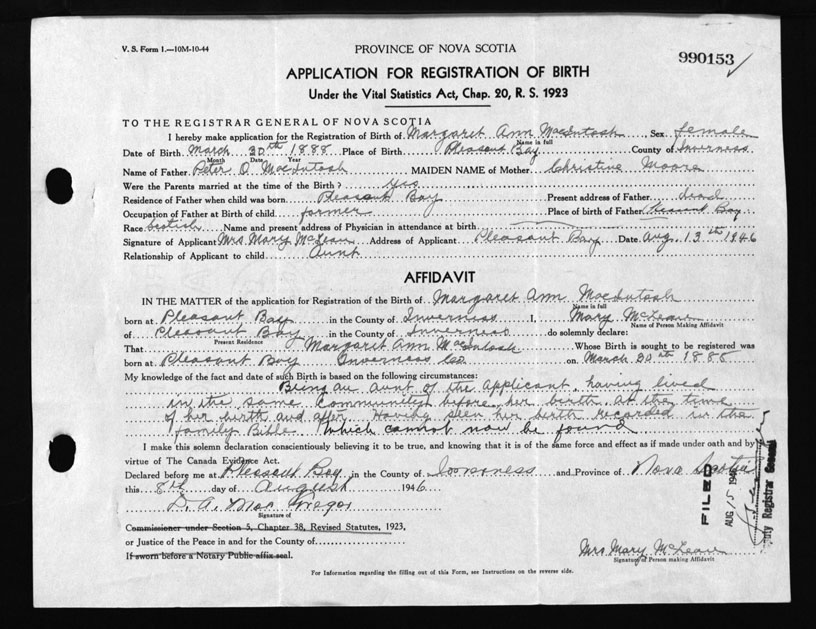 V. S. Form 1.—10M-10-44
PROVINCE OF NOVA SCOTIA
990153
APPLICATION FOR REGISTRATION OF BIRTH
Under the Vital Statistics Act, Chap. 20, R. S. 1923
TO THE REGISTRAR GENERAL OF NOVA SCOTIA
I hereby make application for the Registration of Birth of Margaret Ann MacIntosh, Sex female
Name in full
Date of Birth March 20th 1888 Place of Birth Pleasant Bay County of Inverness
Month Date Year
Name of Father Peter D. MacIntosh MAIDEN NAME of Mother Christine Moore
Were the Parents married at the time of the Birth? Yes
Residence of Father when child was born Pleasant Bay Present address of Father dead
Occupation of Father at Birth of child farmer Place of birth of Father Pleasant Bay
Race Scotish Name and present address of Physician in attendance at birth
Signature of Applicant Mrs. Mary McLean Address of Applicant Pleasant Bay Date Aug. 13th 1946
Relationship of Applicant to child Aunt
AFFIDAVIT
IN THE MATTER of the application for Registration of the Birth of Margaret Ann MacIntosh
Name in full
born at Pleasant Bay in the County of Inverness I, Mary McLean
Name of Person Making Affidavit
of Pleasant Bay in the County of Inverness do solemnly declare:
Present Residence
That Margaret Ann MacIntosh Whose Birth is sought to be registered was
born at Pleasant Bay Inverness Co. on March 20th 1888
My knowledge of the fact and date of such Birth is based on the following circumstances:
Being an aunt of the applicant, having lived
in the same Community before her birth at the time
of her birth and after. Having seen her birth recorded in the
family Bible. Which cannot now be found
I make this solemn declaration conscientiously believing it to be true, and knowing that it is of the same force and effect as if made under oath and by
virtue of The Canada Evidence Act.
Declared before me at Pleasant Bay in the County of Inverness and Province of Nova Scotia
this day of August 1946
D. A. MacGregor
Signature of
Commissioner under Section 5, Chapter 38, Revised Statutes, 1923,
or Justice of the Peace in and for the County of
If sworn before a Notary Public affix seal.
Mrs Mary McLean
Signature of Person making Affidavit
For Information regarding the filling out of this Form, see Instructions on the reverse side.
FILED
AUG 15 1946
Deputy Registrar General